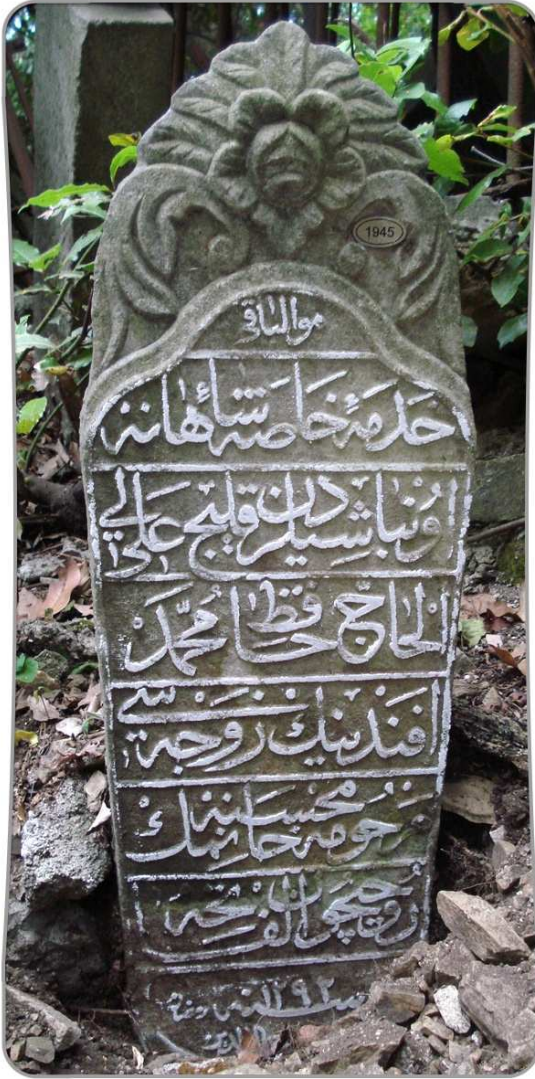 هو الباقي
1945
خدمهٔ خاصهٔ شاهانه
اونباشيلردن قليج علي
الحاج حافظ محمد
افندينك زوجه سي
مرحومه محسنه خانمك
روحيچون الفاتحه
سنه